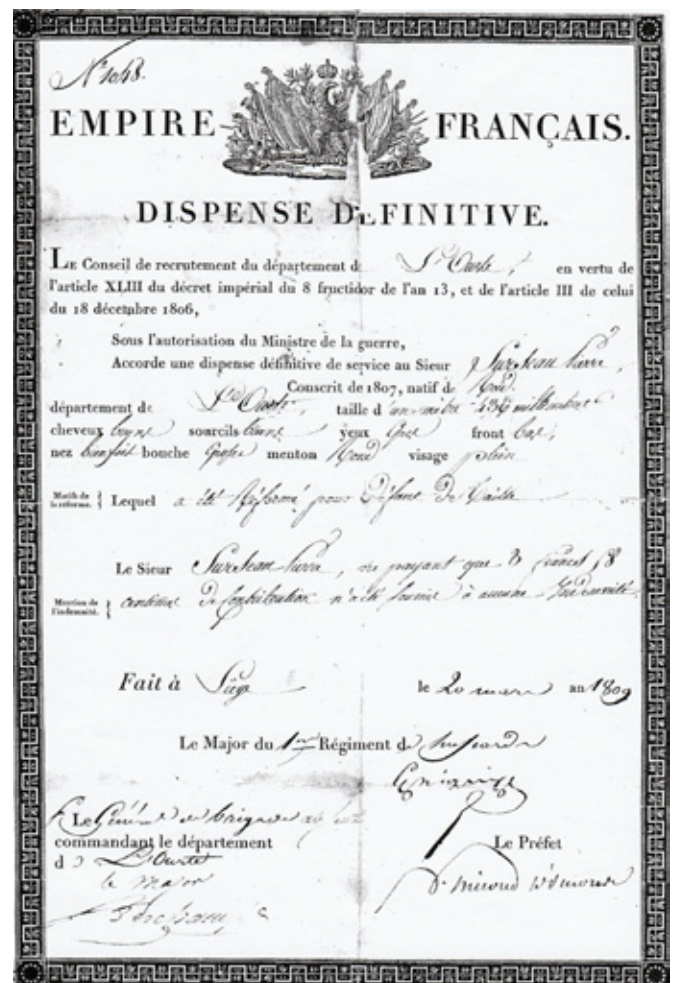 N° 1048.
EMPIRE FRANÇAIS.
DISPENSE DÉFINITIVE.
LE Conseil de recrutement du département de L'Ourte, en vertu de
l'article XLIII du décret impérial du 8 fructidor de l'an 13, et de l'article III de celui
du 18 décembre 1806,
Sous l'autorisation du Ministre de la guerre,
Accorde une dispense définitive de service au Sieur Jean Pierre,
Conscrit de 1807, natif de
département de L'Ourte, taille d un mètre 436 millimètres
cheveux bruns sourcils bruns yeux gris front bas,
nez bienfait bouche grosse menton rond visage plein
Motifs de la réforme. } Lequel a été Réformé pour défaut de taille
Le Sieur Jean Pierre, ne payant que 3 francs 58
Mention de l'indemnité. } centimes de Contribution n'a été soumis à aucune Indemnité.
Fait à Liège le 20 mars an 1809
Le Major du 1er Régiment de
Le Général de brigade
commandant le département Le Préfet
d L'Ourte
le major